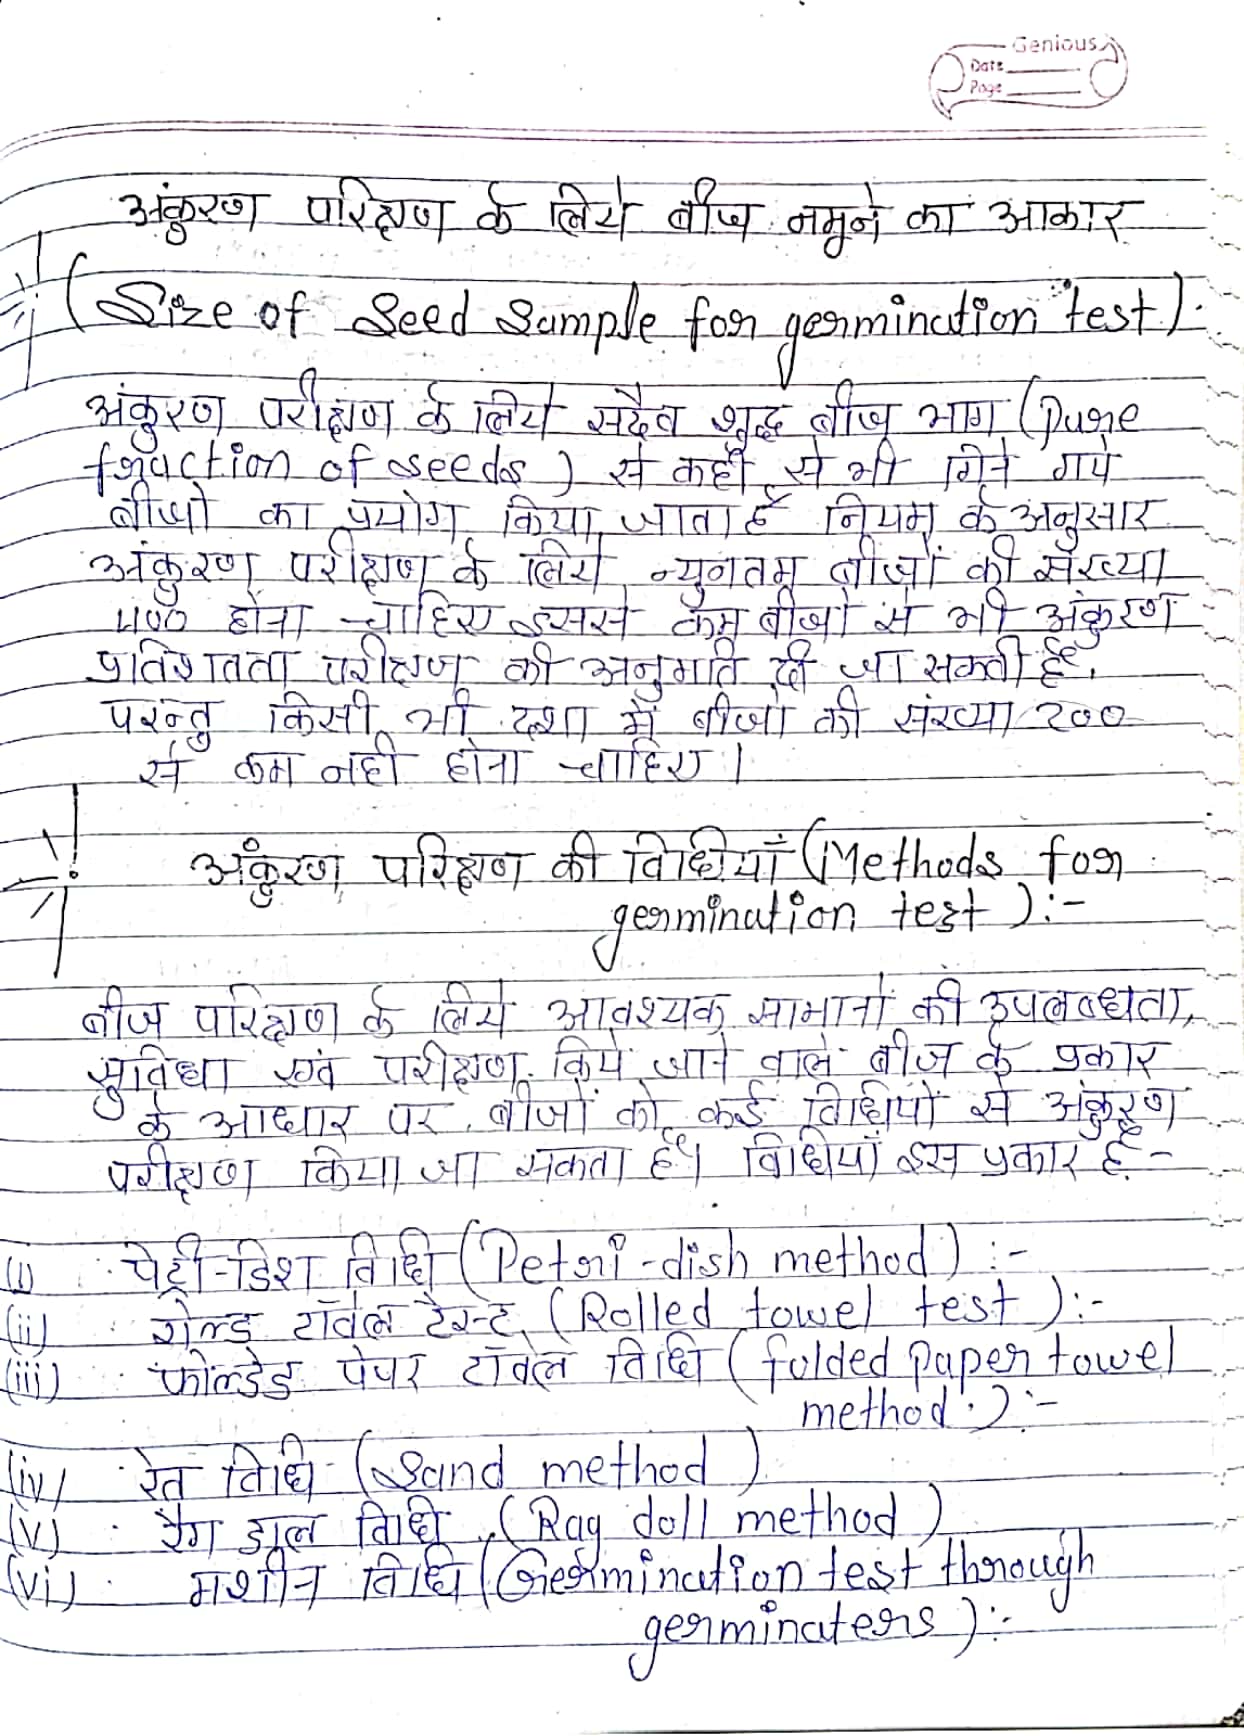 Genious
Date
Page
अंकुरण परिक्षण के लिये बीज नमूने का आकार
(Size of Seed Sample for germination test).
अंकुरण परीक्षण के लिये सदैव शुद्ध बीज भाग (Pure
fraction of seeds) से कहीं से भी गिने गये
बीजो का प्रयोग किया जाता है नियम के अनुसार
अंकुरण परीक्षण के लिये न्युनतम बीजों की संख्या
400 होना चाहिए इससे कम बीजो से भी अंकुरण
प्रतिशतता परीक्षण की अनुमति दी जा सकती है,
परन्तु किसी भी दशा में बीजो की संख्या 200
से कम नही होना चाहिए।
अंकुरण परिक्षण की विधियाँ (Methods for
germination test):-
बीज परिक्षण के लिये आवश्यक सामानो की उपलब्धता,
सुविधा एवं परीक्षण किये जाने वाले बीज के प्रकार
के आधार पर बीजों को कई विधियो से अंकुरण
परीक्षण किया जा सकता है। विधियाँ इस प्रकार है -
(i) पेट्री-डिश विधि (Petri-dish method) :-
(ii) रोल्ड टॉवेल टेस्ट (Rolled towel test):-
(iii) फोल्डेड पेपर टॉवेल विधि (folded paper towel
method.):-
(iv) रेत विधि (Sand method)
(v) रैग डाल विधि (Rag doll method)
(vi) मशीन विधि (Germination test through
germinaters):-